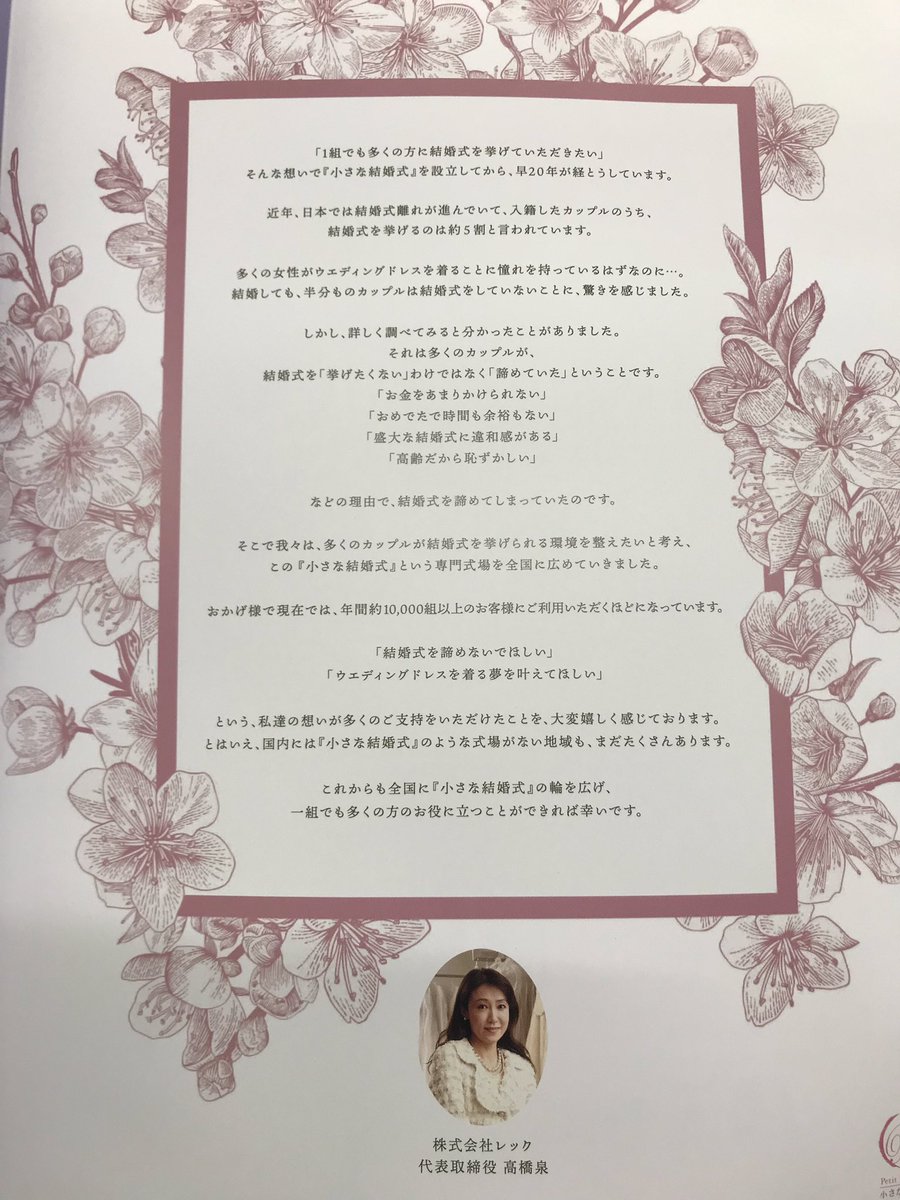 「1組でも多くの方に結婚式を挙げていただきたい」
そんな想いで『小さな結婚式』を設立してから、早20年が経とうしています。
近年、日本では結婚式離れが進んでいて、入籍したカップルのうち、
結婚式を挙げるのは約5割と言われています。
多くの女性がウエディングドレスを着ることに憧れを持っているはずなのに…。
結婚しても、半分ものカップルは結婚式をしていないことに、驚きを感じました。
しかし、詳しく調べてみると分かったことがありました。
それは多くのカップルが、
結婚式を「挙げたくない」わけではなく「諦めていた」ということです。
「お金をあまりかけられない」
「おめでたで時間も余裕もない」
「盛大な結婚式に違和感がある」
「高齢だから恥ずかしい」
などの理由で、結婚式を諦めてしまっていたのです。
そこで我々は、多くのカップルが結婚式を挙げられる環境を整えたいと考え、
この『小さな結婚式』という専門式場を全国に広めていきました。
おかげ様で現在では、年間約10,000組以上のお客様にご利用いただくほどになっています。
「結婚式を諦めないでほしい」
「ウエディングドレスを着る夢を叶えてほしい」
という、私達の想いが多くのご支持をいただけたことを、大変嬉しく感じております。
とはいえ、国内には『小さな結婚式』のような式場がない地域も、まだたくさんあります。
これからも全国に『小さな結婚式』の輪を広げ、
一組でも多くの方のお役に立つことができれば幸いです。
株式会社レック
代表取締役 高橋泉
Petit
小さな